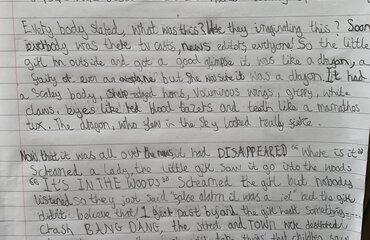 Every body stared, what was this? Were they imagining this? Soon
everbody was there tv casts, news editors everyone! So the little
girl ran outside and got a good glimpse it was like a dragon, a
or even an but she was sure it was a dragon. It had
a Scaley body, edged horns, Nourmous wings, grippy, white
claws, eyes like red blood and teeth like a
tux. The dragon, who flew in the sky looked really
Now that it was all over the news it had DISAPPEARED "Where is it"
Screamed a lady, the little girl saw it go into the woods
"IT'S IN THE WOODS" Screamed the girl but nobody
listened so they just said "false alarm it was a but the girl
didn't believe that! 1 year past by and the girl heard something...
Crash BANG DANG, the street and TOWN were